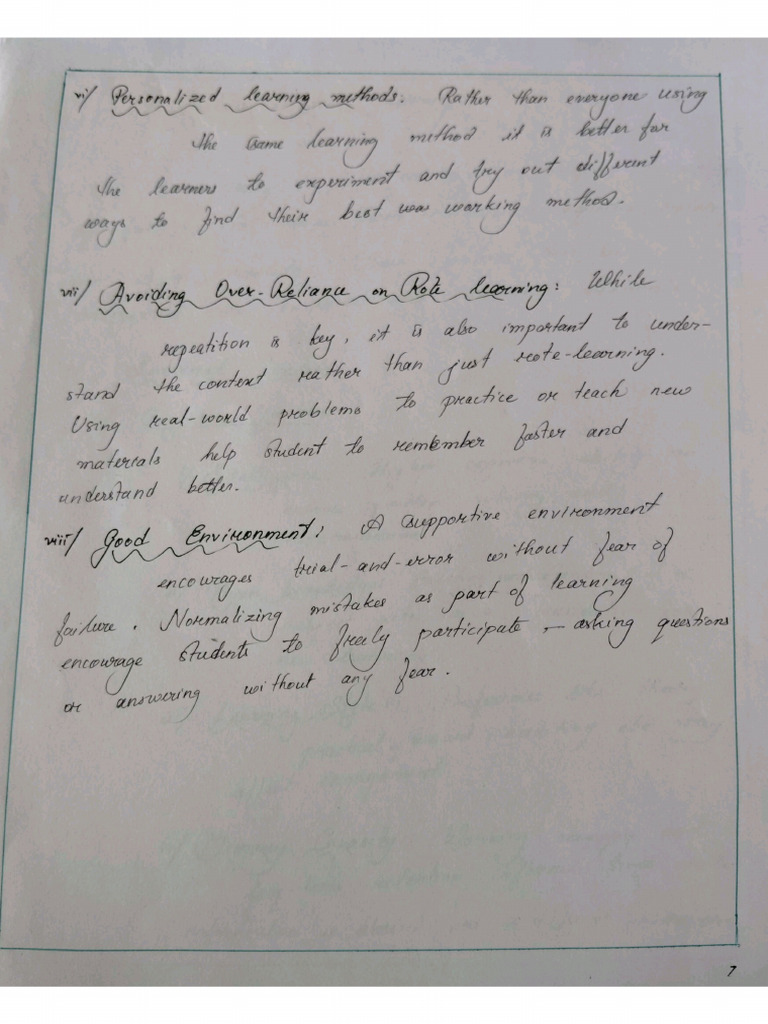 vi/ Personalized learning methods: Rather than everyone using
the same learning method it is better for
the learners to experiment and try out different
ways to find their best was working method.
vii/ Avoiding Over-Reliance on Rote learning: While
repeatition is key, it is also important to under-
stand the context rather than just rote-learning.
Using real-world problems to practice or teach new
materials help student to remember faster and
understand better.
viii/ Good Environment: A supportive environment
encourages trial-and-error without fear of
failure. Normalizing mistakes as part of learning
encourage students to freely participate - asking questions
or answering without any fear.
7